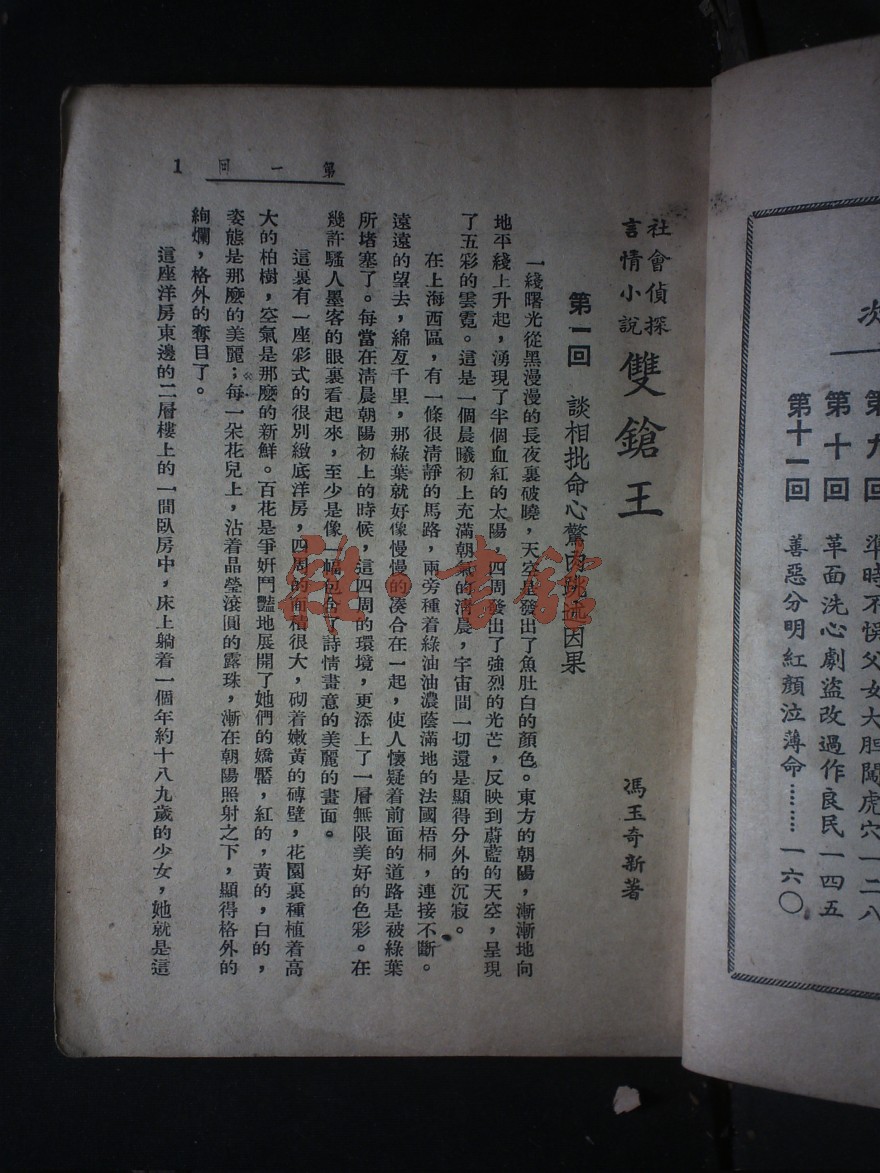 次
第九回 準時不悞父女大胆闖虎穴一二八
第十回 革面洗心劇盜改過作良民一四五
第十一回 善惡分明紅顏泣薄命………一六〇
社會偵探
言情小說
雙鎗王
馮玉奇新著
第一回 談相批命心驚肉跳述因果
一綫曙光從黑漫漫的長夜裏破曉，天空裏發出了魚肚白的顏色。東方的朝陽，漸漸地向
地平綫上升起，湧現了半個血紅的太陽，四周發出了強烈的光芒，反映到蔚藍的天空，呈現
了五彩的雲霓。這是一個晨曦初上充滿朝氣的清晨，宇宙間一切還是顯得分外的沉寂。
在上海西區，有一條很清靜的馬路，兩旁種着綠油油濃蔭滿地的法國梧桐，連接不斷。
遠遠的望去，綿亙千里，那綠葉就好像慢慢的湊合在一起，使人懷疑着前面的道路是被綠葉
所堵塞了。每當在清晨朝陽初上的時候，這四周的環境，更添上了一層無限美好的色彩。在
幾許騷人墨客的眼裏看起來，至少是像一幅包含了詩情畫意的美麗的畫面。
這裏有一座彩式的很別緻底洋房，四周的面積很大，砌着嫩黃的磚壁，花園裏種植着高
大的柏樹，空氣是那麼的新鮮。百花是爭妍鬥豔地展開了她們的嬌靨，紅的，黃的，白的，
姿態是那麼的美麗；每一朵花兒上，沾着晶瑩滾圓的露珠，漸在朝陽照射之下，顯得格外的
絢爛，格外的奪目了。
這座洋房東邊的二層樓上的一間臥房中，床上躺着一個年約十八九歲的少女，她就是這
第一回
1
雜·書館